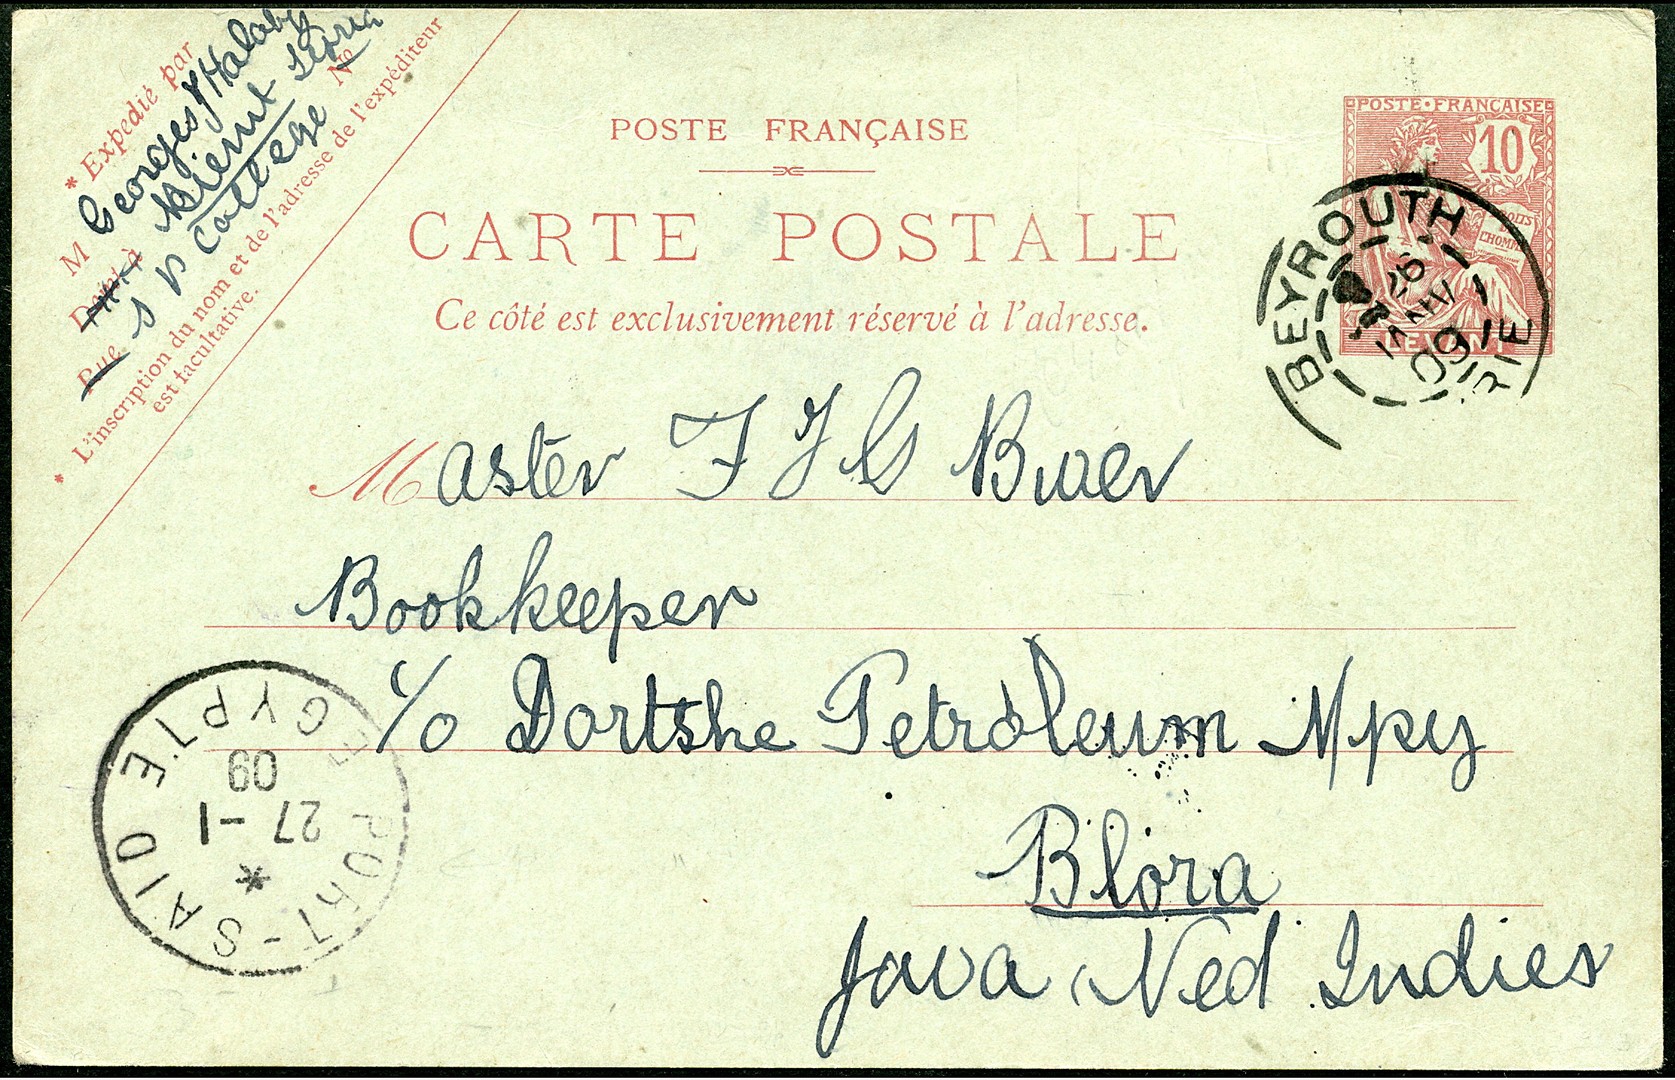 * Expedié par
M Georges Y Halaby
à Syria
S P College No
Rue
* L'inscription du nom et de l'adresse de l'expéditeur
est facultative.
POSTE FRANÇAISE
CARTE POSTALE
Ce côté est exclusivement réservé à l'adresse.
POSTE·FRANÇAISE
10
LEVANT
BEYROUTH
26
JANV
09
Master F J G
Bookkeeper
c/o Dortshe Petroleum Mpy
Blora
Java Ned Indies
PORT-SAID EGYPTE
27-1
09